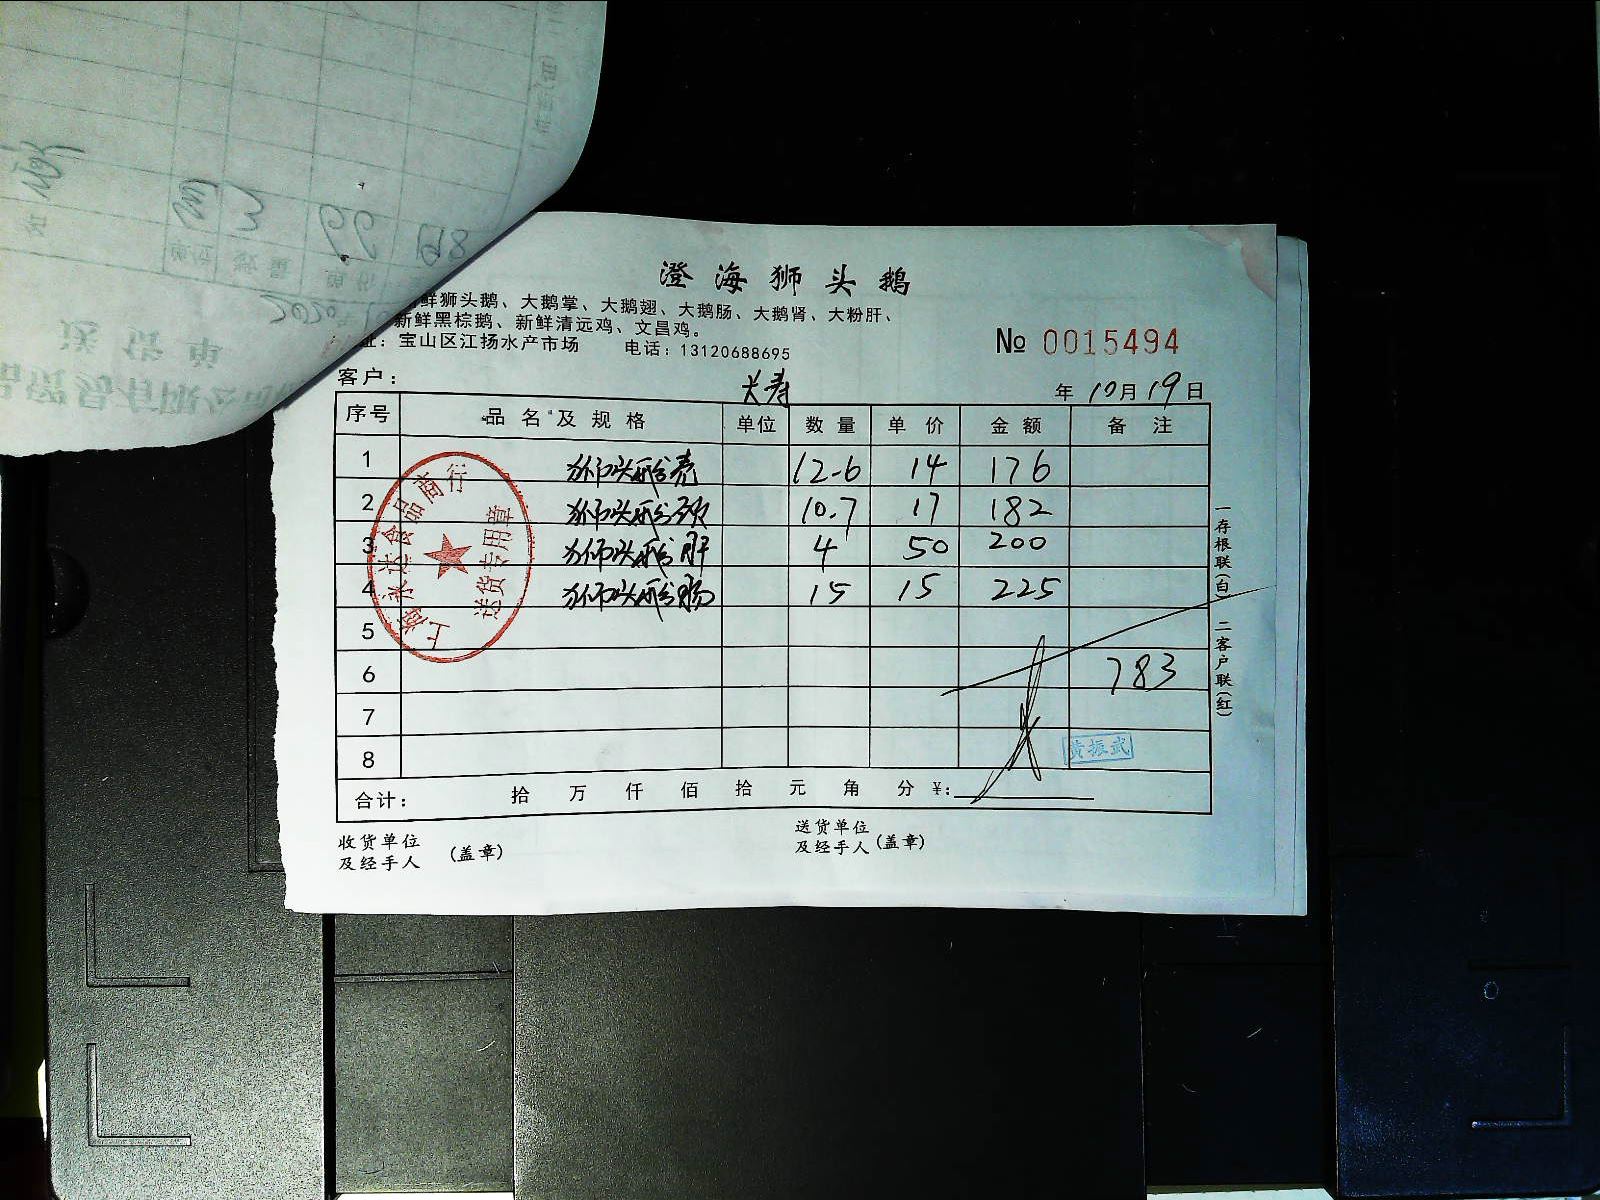 澄海狮头鹅
鲜狮头鹅、大鹅掌、大鹅翅、大鹅肠、大鹅肾、大粉肝、
新鲜黑棕鹅、新鲜清远鸡、文昌鸡。
址：宝山区江扬水产市场 电话：13120688695
№ 0015494
客户： 长寿 年 10月19日
序号 品名及规格 单位 数量 单价 金额 备注
1 狮头鹅壳 12.6 14 176
2 狮头鹅颈 10.7 17 182
3 狮头鹅肝 4 50 200
4 狮头鹅肠 15 15 225
5
6 783
7
8
黄振武
合计： 拾 万 仟 佰 拾 元 角 分 ¥：
收货单位
及经手人 （盖章）
送货单位
及经手人（盖章）
一存根联（白） 二客户联（红）
上海永达食品商行
送货专用章
送货单